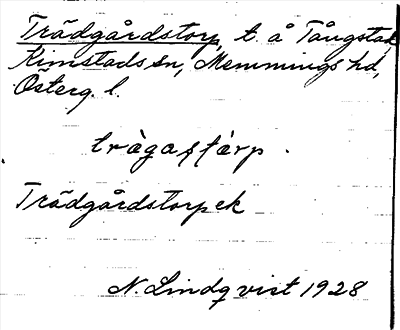 Trädgårdstorp, t. å Tångstad,
Kimstads sn, Memmings hd,
Österg. l.
Trädgårdstorp ek
N. Lindqvist 1928